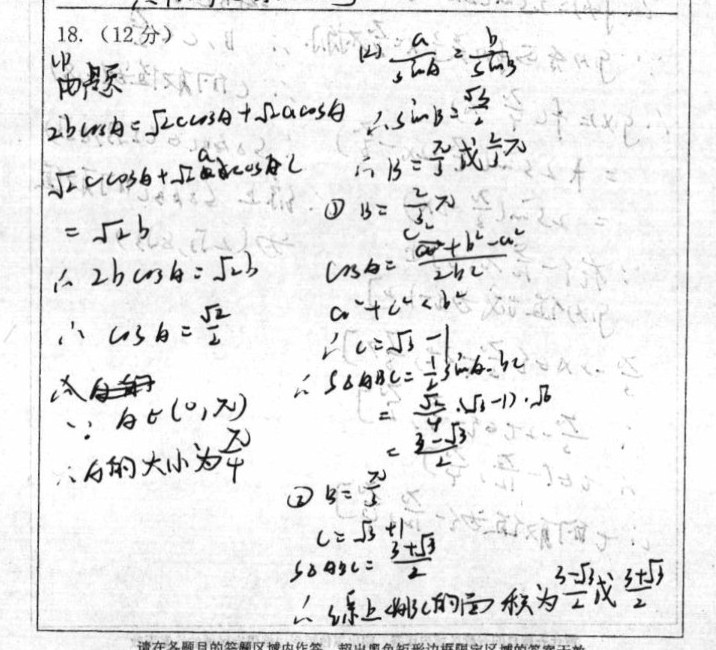 18.(12分)
(1)
由题
2bcosA=√2ccosA+√2acosA
√2ccosA+√2acosC
=√2b
∴2bcosA=√2b
∴cosA=√2/2
∵A∈(0,π)
∴A的大小为π/4
(2) a/sinA=b/sinB
∴sinB=√3/2
∴B=π/3或2/3π
① B=2/3π
cosA=(c²+b²-a²)/2bc
a²+c²<b²
∴c=√3-1
∴S△ABC=1/2sinA·bc
=√2/4·(√3-1)·√6
=(3-√3)/2
② B=π/3
c=√3+1
S△ABC=(3+√3)/2
∴综上 △ABC的面积为(3-√3)/2或(3+√3)/2